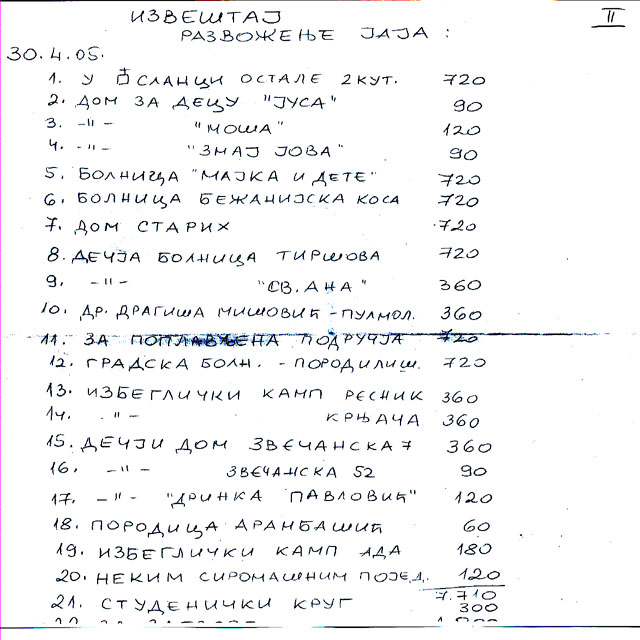 ИЗВЕШТАЈ
II
РАЗВОЖЕЊЕ ЈАЈА :
30.4.05.
1. У СЛАНЦИ ОСТАЛЕ 2 КУТ. 720
2. ДОМ ЗА ДЕЦУ "ЈУСА" 90
3. -"- "МОША" 120
4. -"- "ЗМАЈ ЈОВА" 90
5. БОЛНИЦА "МАЈКА И ДЕТЕ" 720
6. БОЛНИЦА БЕЖАНИЈСКА КОСА 720
7. ДОМ СТАРИХ 720
8. ДЕЧЈА БОЛНИЦА ТИРШОВА 720
9. -"- "СВ. АНА" 360
10. ДР. ДРАГИША МИШОВИЋ - ПУЛМОЛ. 360
11. ЗА ПОПЛАВЉЕНА ПОДРУЧЈА 720
12. ГРАДСКА БОЛН. - ПОРОДИЛИШ. 720
13. ИЗБЕГЛИЧКИ КАМП РЕСНИК 360
14. -"- КРЊАЧА 360
15. ДЕЧЈИ ДОМ ЗВЕЧАНСКА 7 360
16. -"- ЗВЕЧАНСКА 52 90
17. -"- "ДРИНКА ПАВЛОВИЋ" 120
18. ПОРОДИЦА АРАНБАШИЋ 60
19. ИЗБЕГЛИЧКИ КАМП АДА 180
20. НЕКИМ СИРОМАШНИМ ПОЈЕД. 120
7.710
21. СТУДЕНИЧКИ КРУГ 300